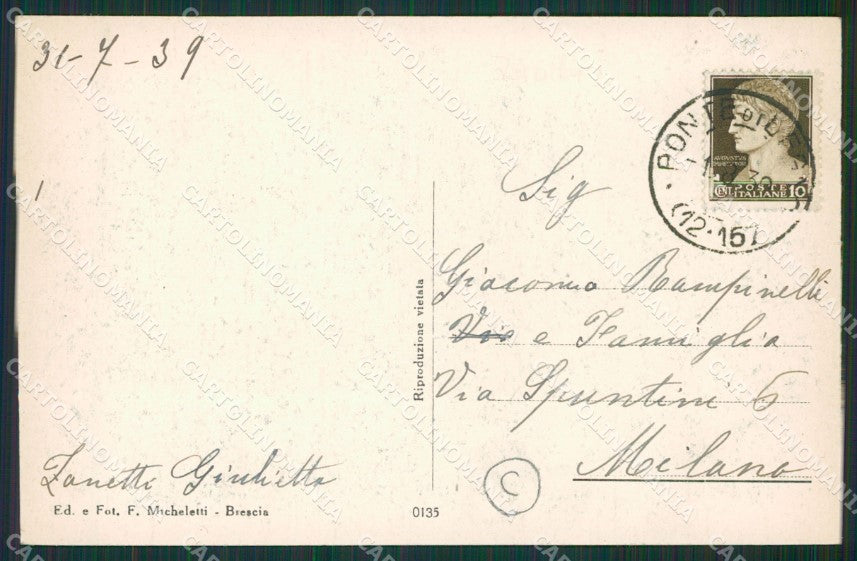 31-7-39
PONTE DI L
1. 39
(12-157
AUGUSTUS
CENT. POSTE ITALIANE 10
Sig
Giacomo Rampinelli
Via e Famiglia
Via Spuntini 6
Milano
Riproduzione vietata
Zanetti Giulietta
C
Ed. e Fot. F. Micheletti - Brescia
0135
CARTOLINOMANIA